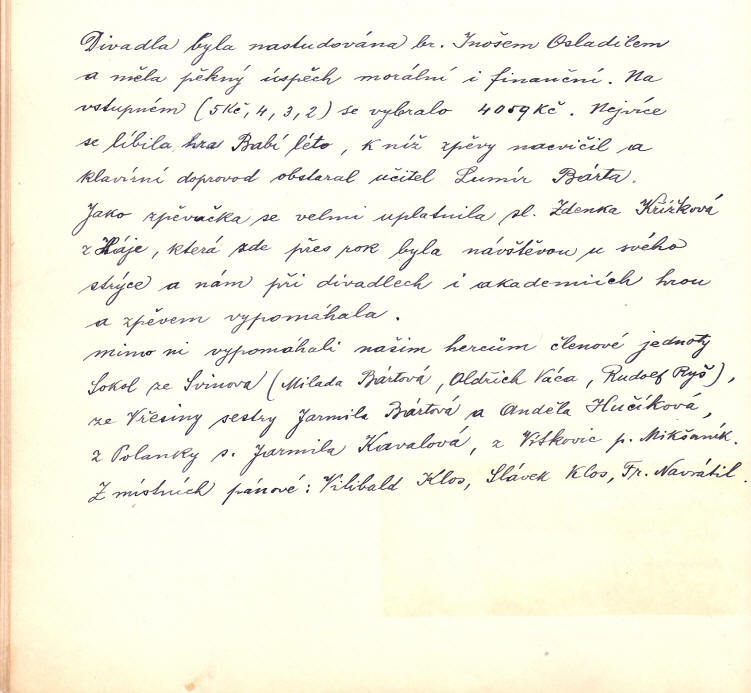 Divadla byla nastudována br. Inošem Osladilem
a měla pěkný úspěch morální i finanční. Na
vstupném (5Kč, 4, 3, 2) se vybralo 4059Kč. Nejvíce
se líbila hra Babí léto, k níž zpěvy nacvičil a
klavírní doprovod obstaral učitel Lumír Bárta.
Jako zpěvačka se velmi uplatnila sl. Zdenka Křížková
z Háje, která zde přes rok byla návštěvou u svého
strýce a nám při divadlech i akademiích hrou
a zpěvem vypomáhala.
mimo ni vypomáhali našim hercům členové jednoty
Sokol ze Svinova (Milada Bártová, Oldřich Váca, Rudolf Ryš),
ze Vřesiny sestry Jarmila Bártová a Anděla Hučíková,
z Polanky s. Jarmila Kavalová, z Vítkovic p. Mikšaník.
Z místních pánové: Vilibald Klos, Slávek Klos, Fr. Navrátil.